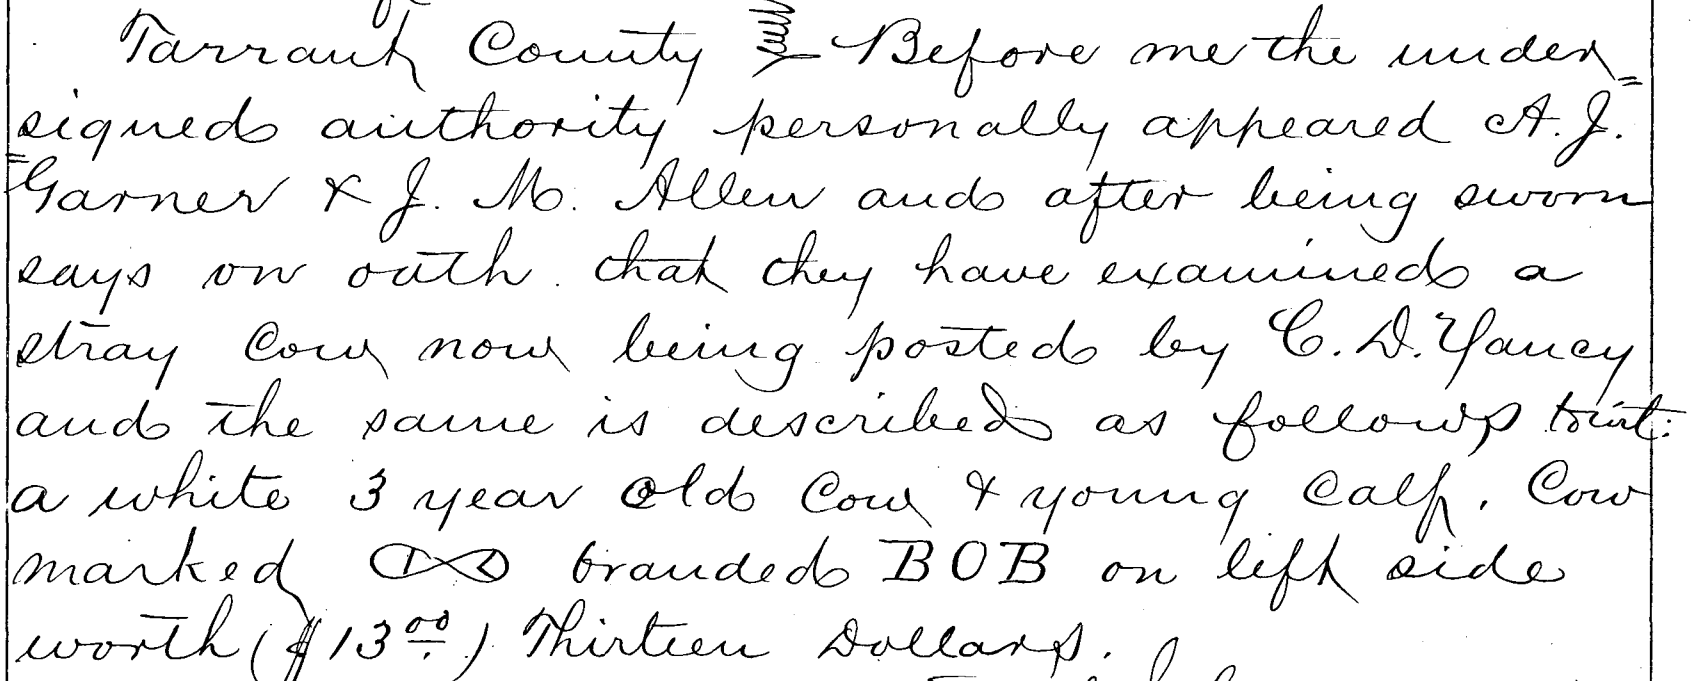 Tarrant County } Before me the under=
signed authority personally appeared A. J.
=Garner & J. M. Allen and after being sworn
says on oath that they have examined a
stray Cow now being posted by C. D. Yancy
and the same is described as follows towit:
a white 3 year old Cow & young Calf. Cow
marked branded BOB on left side
worth ($13.00) Thirteen Dollars.